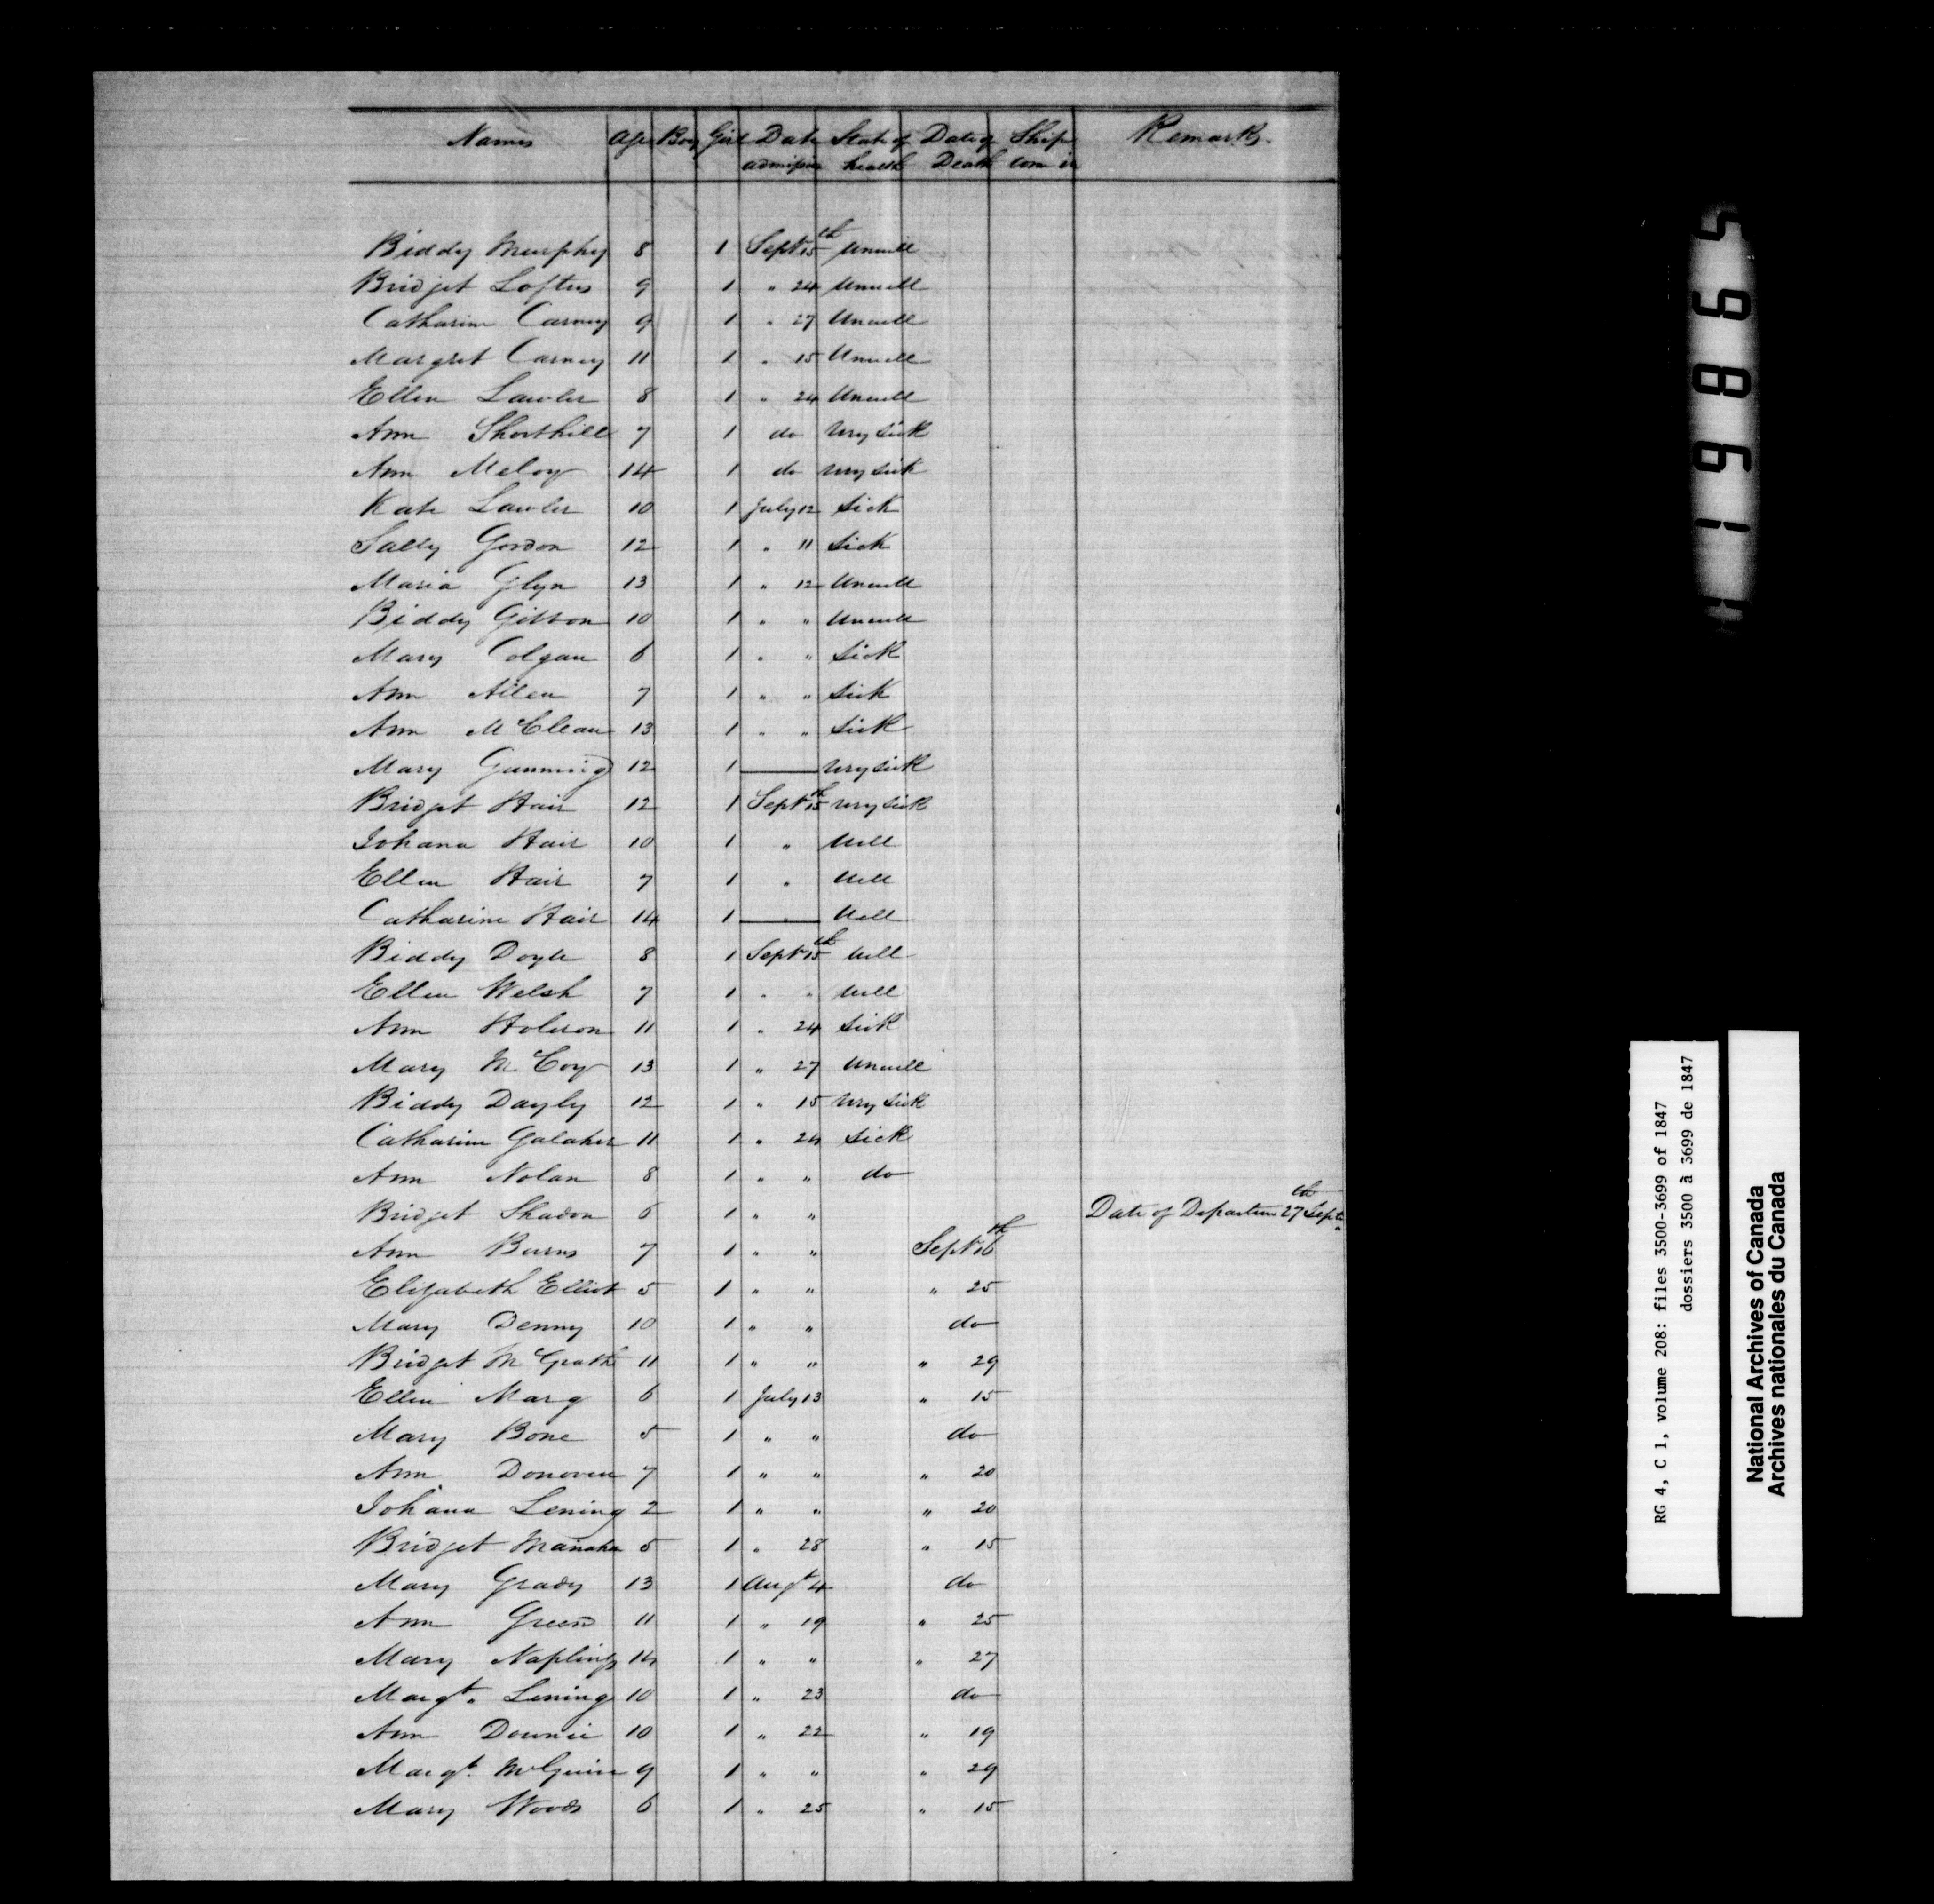 Names Age Boy Girl Date State of Date of Ship Remarks.
admission health Death come in
Biddy Murphy 8 1 Sept 15th Unwell
Bridget Loftus 9 1 " 24 Unwell
Catharine Carney 9 1 " 27 Unwell
Margret Carney 11 1 " 15 Unwell
Ellen Lawler 8 1 " 24 Unwell
Ann Shorthill 7 1 do very sick
Ann Meloy 14 1 do very sick
Kate Lawler 10 1 July 12 Sick
Sally Gordon 12 1 " 11 Sick
Maria Glyn 13 1 " 12 Unwell
Biddy Gibson 10 1 " " Unwell
Mary Colgan 6 1 " " Sick
Ann Ailen 7 1 " " Sick
Ann McClean 13 1 " " Sick
Mary Gunning 12 1 — very sick
Bridget Hair 12 1 Sept 15th very sick
Johana Hair 10 1 " Well
Ellen Hair 7 1 " Well
Catharine Hair 14 1 — Well
Biddy Doyle 8 1 Sept 15th Well
Ellen Welsh 7 1 " " Well
Ann Holdron 11 1 " 24 Sick
Mary McCoy 13 1 " 27 Unwell
Biddy Dayly 12 1 " 15 very sick
Catharine Galaher 11 1 " 24 Sick
Ann Nolan 8 1 " " do
Bridget Shadon 6 1 " " Date of Departure 27th Sept
Ann Burns 7 1 " " Sept 16th
Elizabeth Elliot 5 1 " " " 25
Mary Denny 10 1 " " do
Bridget McGrath 11 1 " " " 29
Ellen Marg 6 1 July 13 " 15
Mary Bone 5 1 " " do
Ann Donoven 7 1 " " " 20
Johana Lening 2 1 " " " 20
Bridget Manaha 5 1 " 28 " 15
Mary Grady 13 1 Augt 4 do
Ann Green 11 1 " 19 " 25
Mary Napling 14 1 " " " 27
Margt. Lening 10 1 " 23 do
Ann Downie 10 1 " 22 " 19
Margt. McGuire 9 1 " " " 29
Mary Woods 6 1 " 25 " 15
16895
RG 4, C 1, volume 208: files 3500-3699 of 1847
dossiers 3500 à 3699 de 1847
National Archives of Canada
Archives nationales du Canada